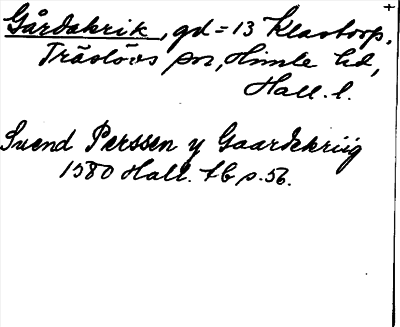 +
Gårdakrik, gd = 13 Klastorp,
Träslövs sn, Himle hd,
Hall. l.
Suend Perssen y Gaardekriig
1580 Hall. tb p. 56.